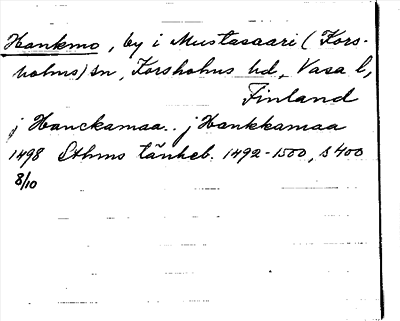 Hankmo, by i Mustasaari (Kors-
holms) sn, Korsholms hd, Vasa l,
Finland
j Hanckamaa.. j Hankkamaa
1498 Sthms tänkeb. 1492-1500, s 400
8/10